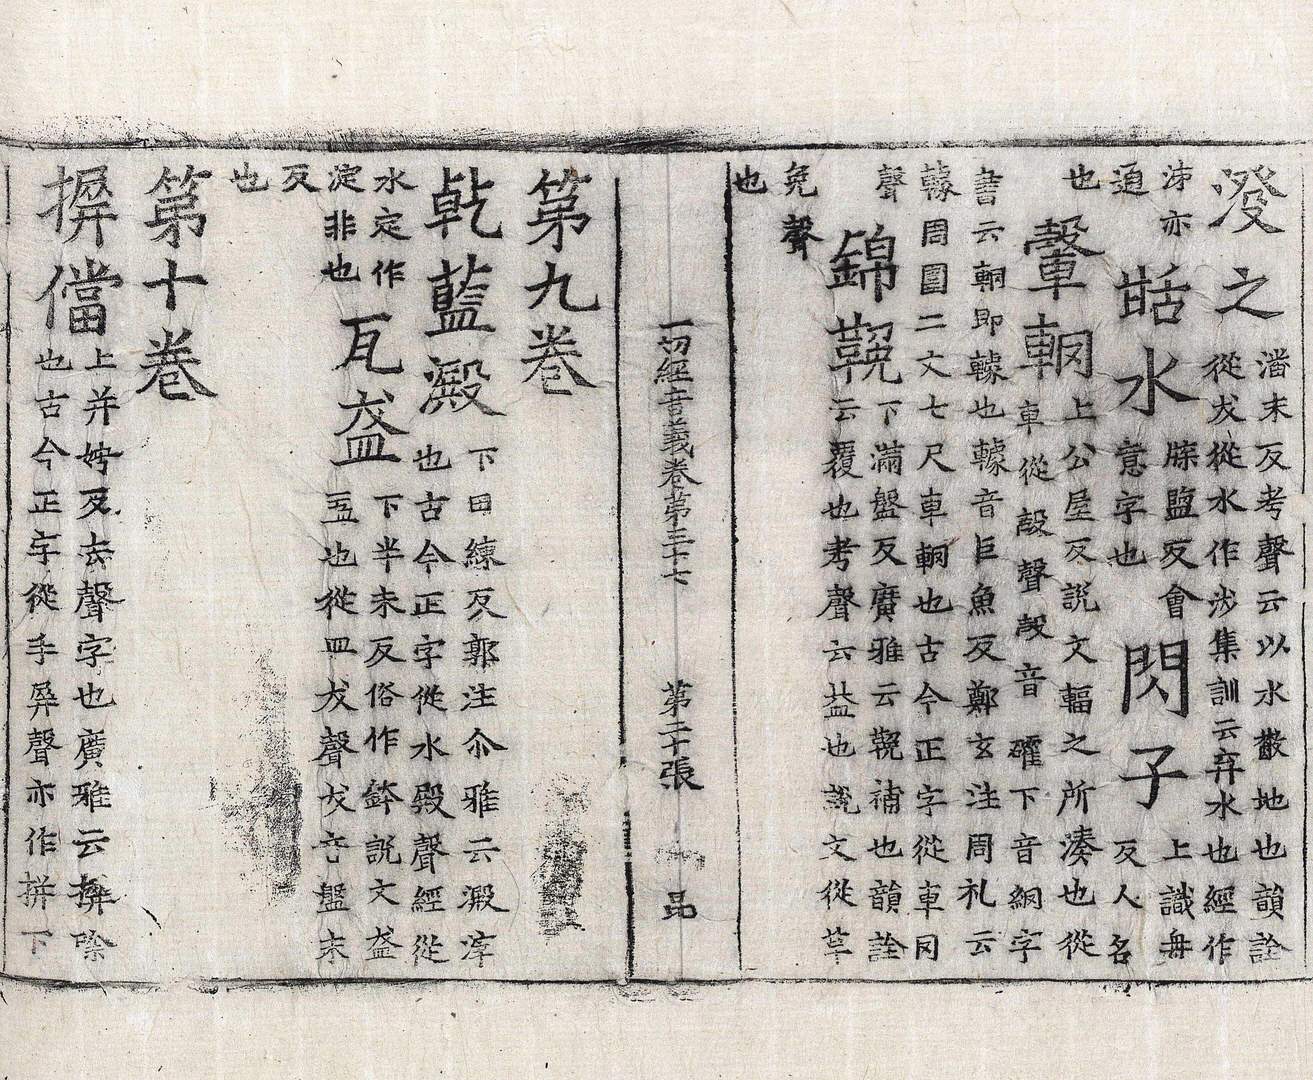 潑之 潘末反考聲云以水散地也韻詮
從犮從水作涉集訓云弃水也經作
涉亦
通 䑛水 牒鹽反會
意字也 閃子 上識舟
反人名
也 轂輞 上公屋反說文輻之所湊也從
車從㱿聲㱿音確下音網字
書云輞即㯫也㯫音巨魚反鄭玄注周礼云
㯫周圍二丈七尺車輞也古今正字從車罔
聲 錦鞔 下滿盤反廣雅云鞔補也韻詮
云覆也考聲云益也說文從革
免聲
也
一切經音義卷第三十七 第二十張 品
第九卷
乾藍澱 下田練反郭注尒雅云澱滓
也古今正字從水殿聲經從
水定作
淀非也 瓦盋 下半末反俗作鉢說文盋
盂也從皿犮聲犮音盤末
反
也
第十卷
摒儅 上并娉反去聲字也廣雅云摒除
也古今正字從手屏聲亦作拼下